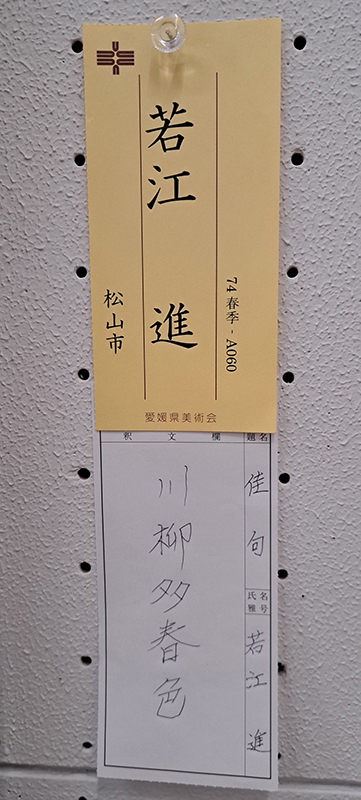 74 春季 - A060
若江 進
松山市
愛媛県美術会
題名
佳句
氏名
雅号
若江 進
釈文欄
川柳多春色